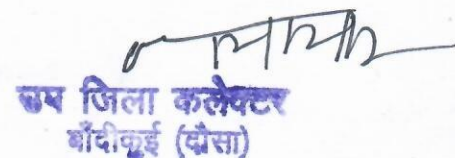 उप जिला कलेक्टर
बाँदीकुई (दौसा)